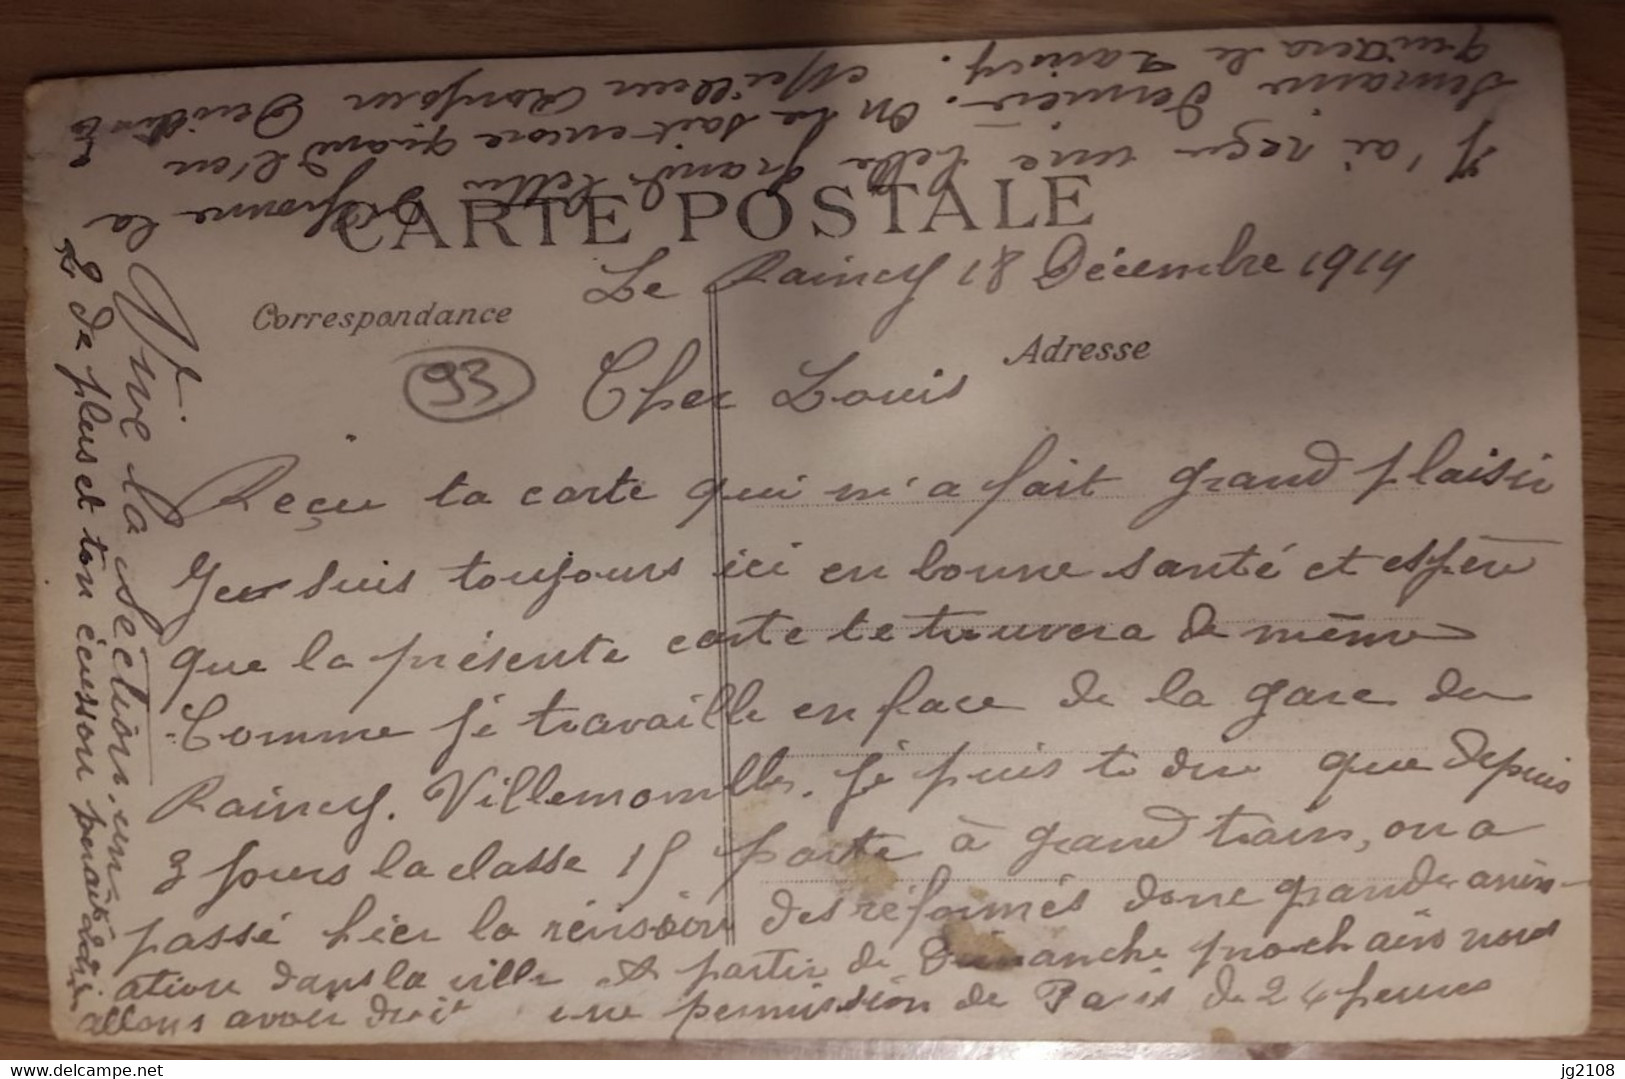 CARTE POSTALE
Correspondance
Adresse
93
Le Raincy 18 Décembre 1914
Cher Louis
Reçu ta carte qui m'a fait grand plaisir
Je suis toujours ici en bonne santé et espère
que la présente carte te trouvera de même
Comme je travaille en face de la gare du
Raincy. Villemomble, je puis te dire que depuis
3 jours la classe 15 parte à grand train, on a
passé hier la révision des réformés donc grande anim-
ation dans la ville A partir de Dimanche prochain nous
allons avoir droit une permission de Paris de 24 heures
J'ai reçu une belle grande lettre de la
semaine dernière. On la sait encore quand l'on
quittera le Raincy. Meilleur bonjour
Vive la Section. un
2 de plus et ton écusson
jg2108